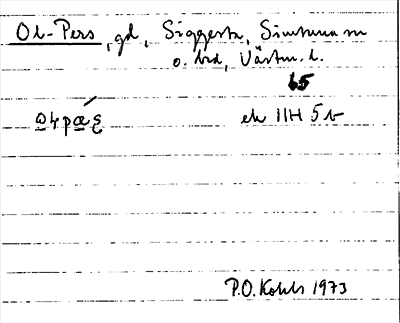 Ol-Pers, gd, Siggesta, Simtuna sn
o. hd, Västm. l.
65
ek 11H 5b
P.O. Kohls 1973